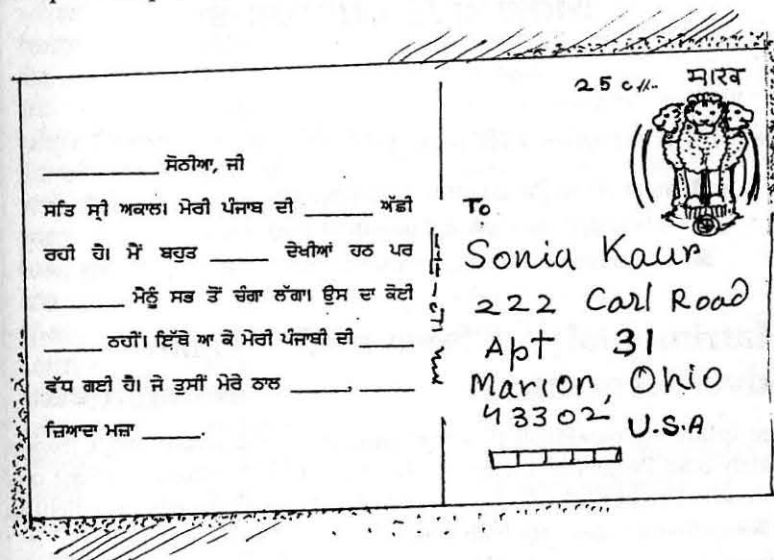 25 c. भारत
______ ਸੋਨੀਆ, ਜੀ
ਸਤਿ ਸ੍ਰੀ ਅਕਾਲ। ਮੇਰੀ ਪੰਜਾਬ ਦੀ ______ ਅੱਛੀ
ਰਹੀ ਹੈ। ਮੈਂ ਬਹੁਤ ______ ਦੇਖੀਆਂ ਹਨ ਪਰ
______ ਮੈਨੂੰ ਸਭ ਤੋਂ ਚੰਗਾ ਲੱਗਾ। ਉਸ ਦਾ ਕੋਈ
______ ਨਹੀਂ। ਇੱਥੇ ਆ ਕੇ ਮੇਰੀ ਪੰਜਾਬੀ ਦੀ ______
ਵੱਧ ਗਈ ਹੈ। ਜੇ ਤੁਸੀਂ ਮੇਰੇ ਨਾਲ ______, ______
ਜ਼ਿਆਦਾ ਮਜ਼ਾ ______.
To
Sonia Kaur
222 Carl Road
Apt 31
Marion, Ohio
43302 U.S.A